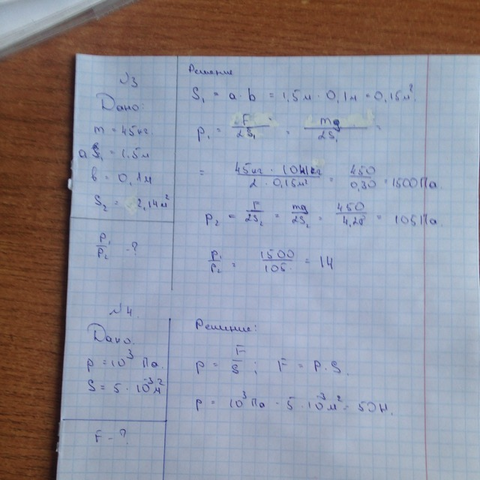 №3
Дано
m = 45кг.
a = 1,5м
b = 0,1м
S₂ = 2,14м²
P₁/P₂ - ?
Решение
S₁ = a · b = 1,5м · 0,1м = 0,15м².
P₁ = F/2S₁ = mg/2S₁ =
= 45кг · 10Н/кг / 2 · 0,15м² = 450/0,30 = 1500Па
P₂ = F/2S₂ = mg/2S₂ = 450/4,28 = 105Па.
P₁/P₂ = 1500/105 = 14
№4.
Дано.
p = 10³ Па.
S = 5 · 10⁻³м²
F - ?
Решение:
p = F/S ; F = P · S.
p = 10³Па · 5 · 10⁻³м² = 50Н.